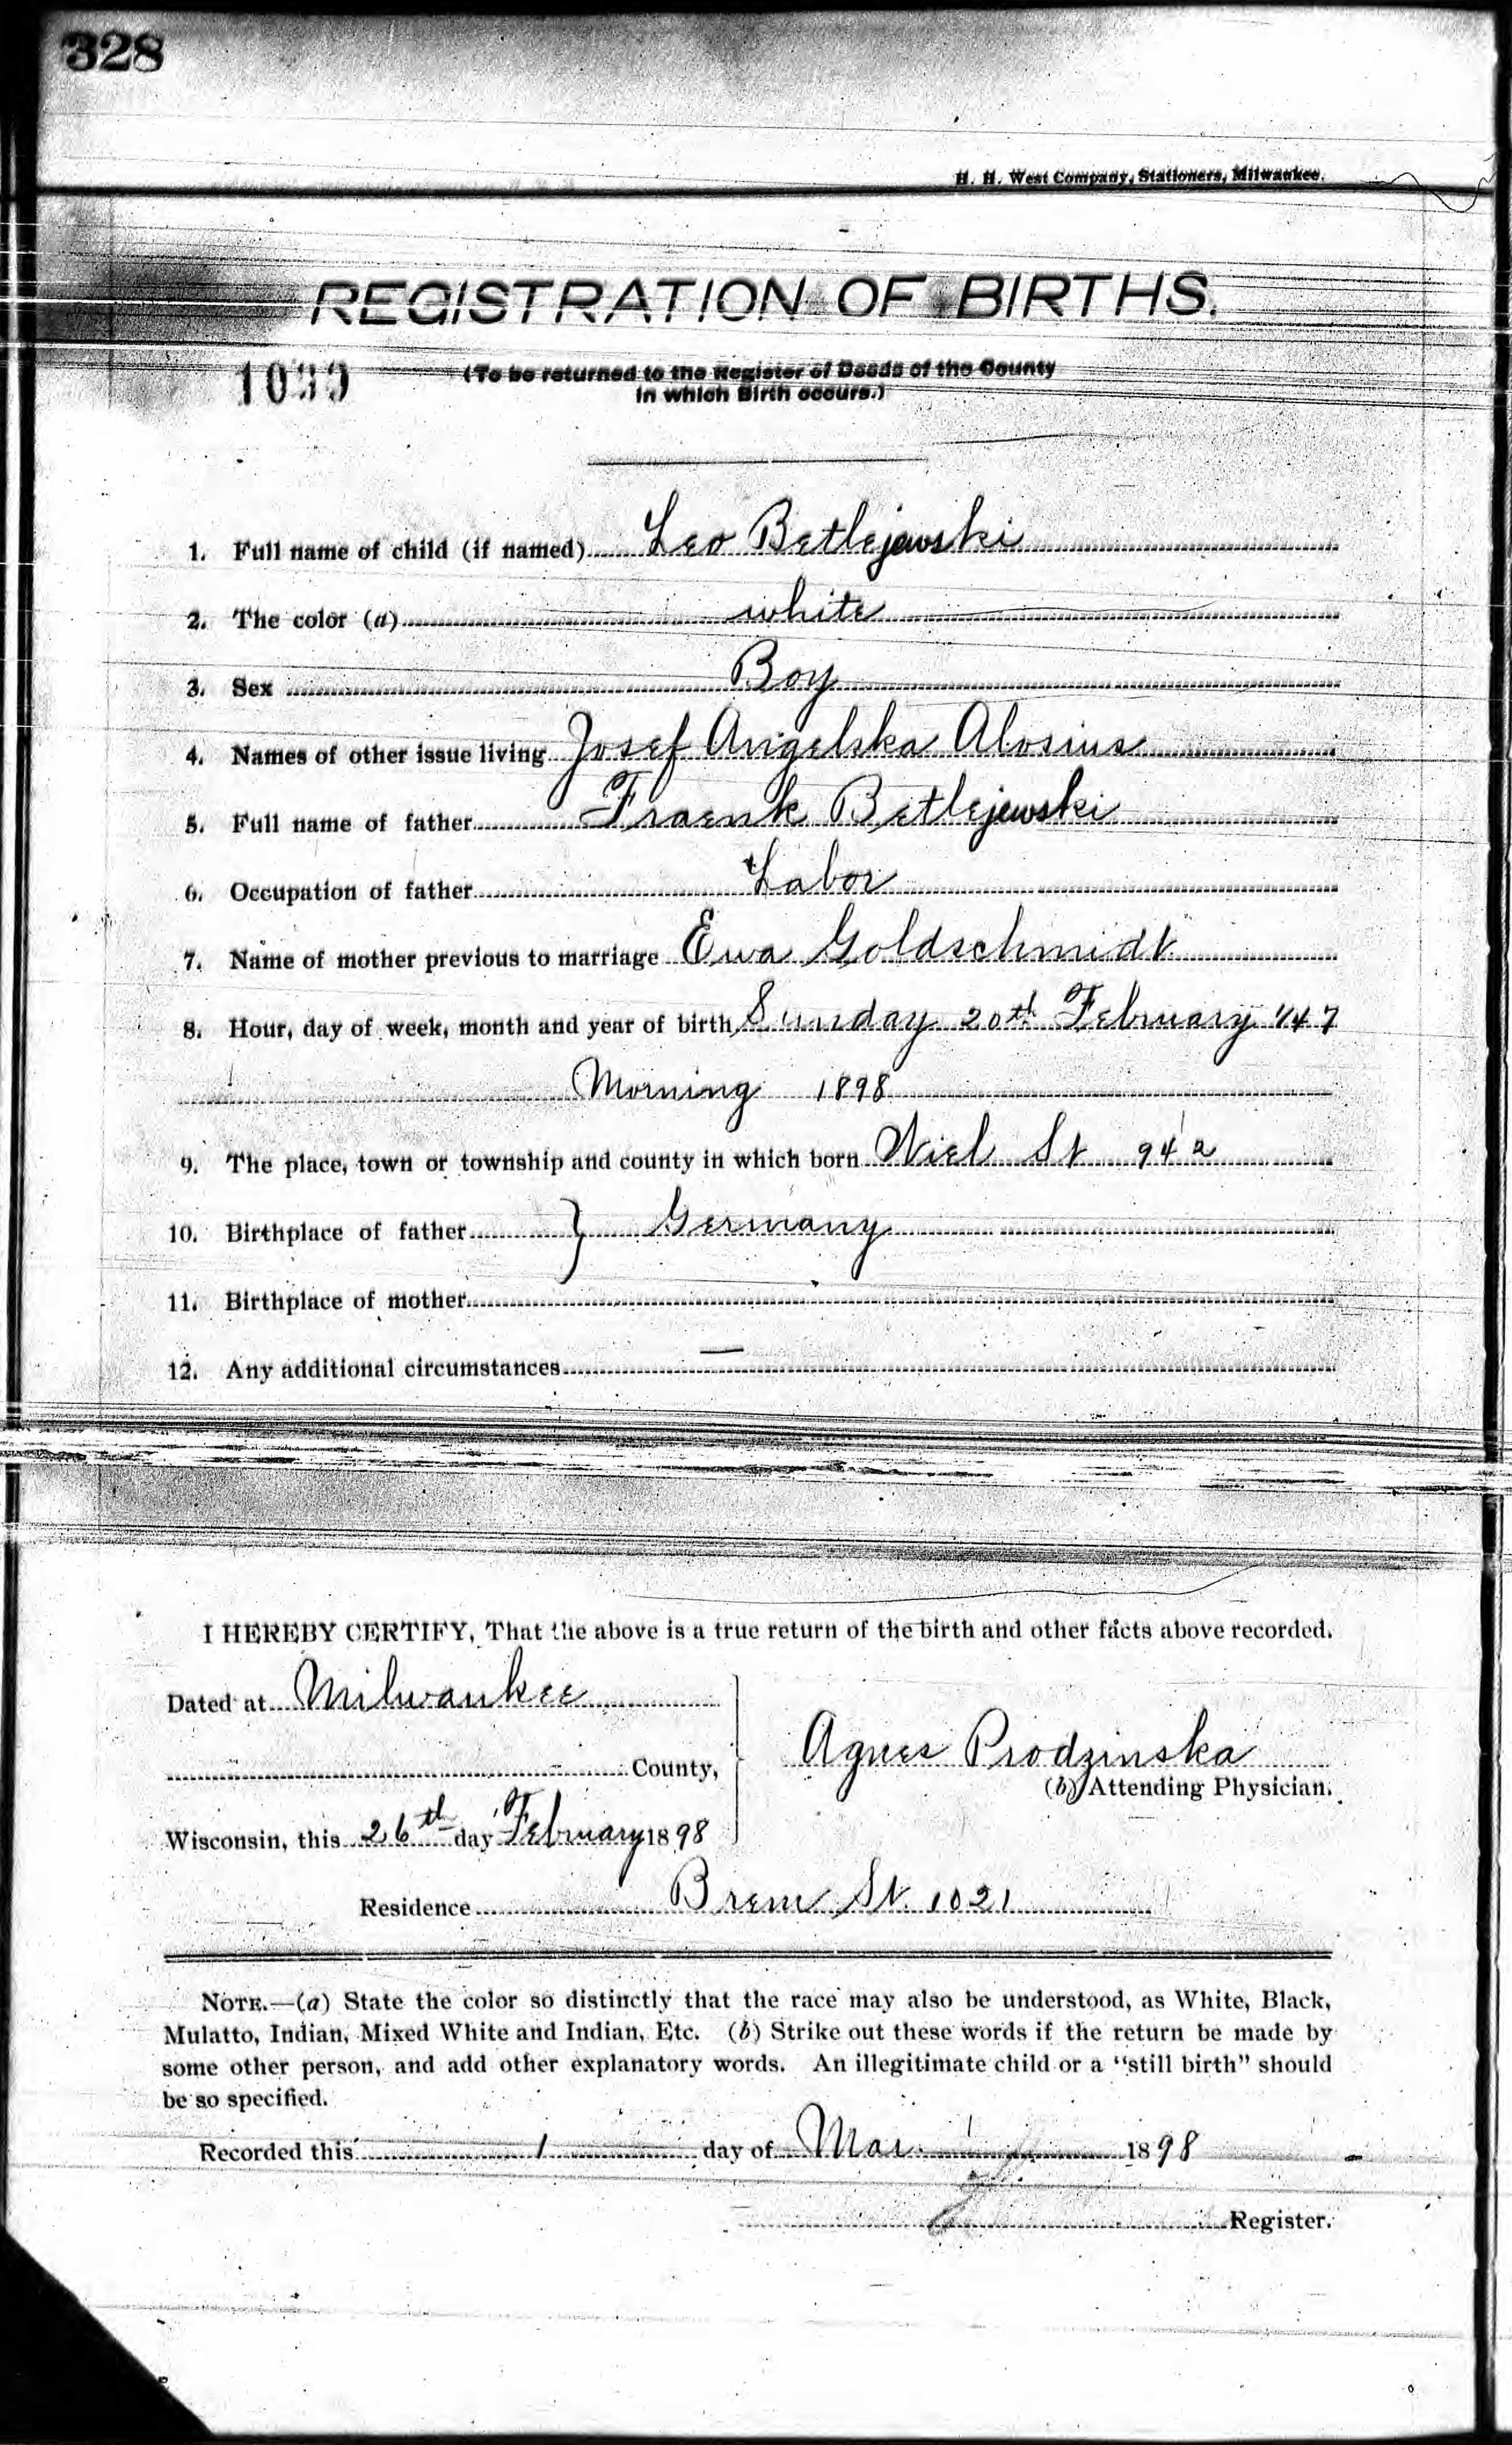 328
H. H. West Company, Stationers, Milwaukee.
REGISTRATION OF BIRTHS.
(To be returned to the Register of Deeds of the County
in which Birth occurs.)
1. Full name of child (if named) Leo Betlejewski
2. The color (a) white
3. Sex Boy
4. Names of other issue living Josef Angelska Alosius
5. Full name of father Fraenk Betlejewski
6. Occupation of father Labor
7. Name of mother previous to marriage Ewa Goldschmidt
8. Hour, day of week, month and year of birth Sunday 20th February 1/4 7
Morning 1898
9. The place, town or township and county in which born St 942
10. Birthplace of father } Germany
11. Birthplace of mother
12. Any additional circumstances —
I HEREBY CERTIFY, That the above is a true return of the birth and other facts above recorded.
Dated at Milwaukee
County,
Agnes Prodzinska
(b) Attending Physician.
Wisconsin, this 26th day February 1898
Residence Brem St. 1021
NOTE.—(a) State the color so distinctly that the race may also be understood, as White, Black,
Mulatto, Indian, Mixed White and Indian, Etc. (b) Strike out these words if the return be made by
some other person, and add other explanatory words. An illegitimate child or a "still birth" should
be so specified.
Recorded this 1 day of Mar. 1898
Register.